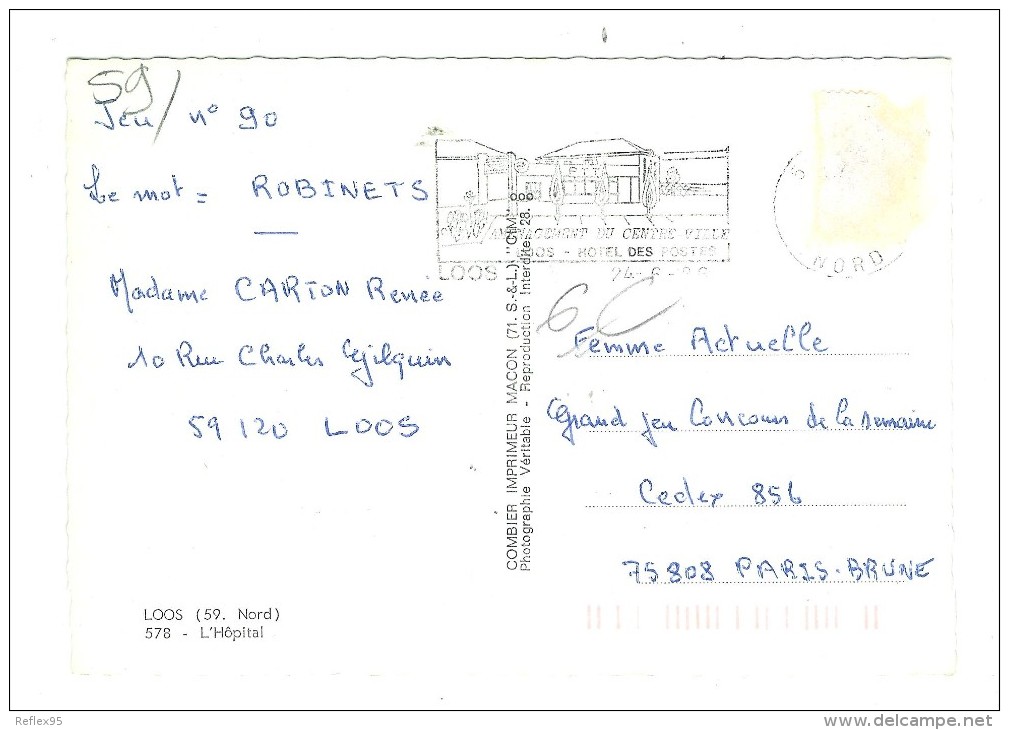 59
Jeu n° 90
Le mot = ROBINETS
Madame CARTON Renée
10 Rue Charles Gilquin
59 120 LOOS
LOOS (59. Nord)
578 - L'Hôpital
COMBIER IMPRIMEUR MACON (71. S.-&-L.) "CIM"
Photographie Véritable - Reproduction Interdite 28.
AMENAGEMENT DU CENTRE VILLE
LOOS - HOTEL DES POSTES
LOOS
NORD
Femme Actuelle
Grand Jeu Concours de la semaine
Cedex 856
75808 PARIS-BRUNE
Reflex95
www.delcampe.net